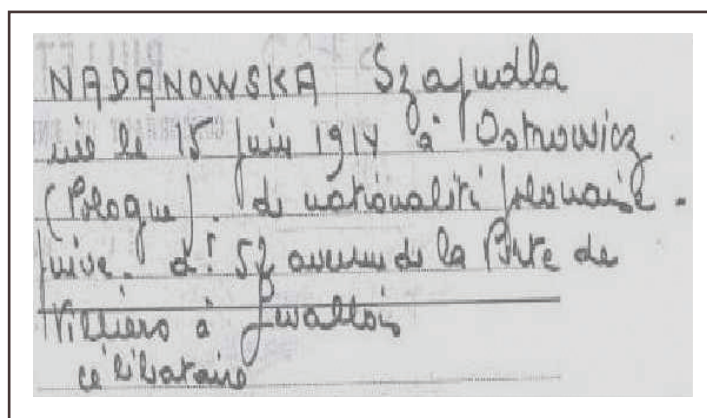 NADANOWSKA Szajndla
née le 15 juin 1914 à Ostrowicz
(Pologne). de nationalité polonaise.
juive. d! 57 avenue de la Porte de
Villiers à Levallois
célibataire